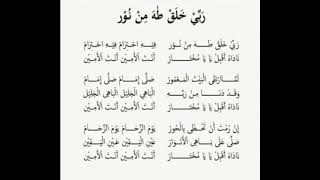 رَبِّيْ خَلَقْ طٰهَ مِنْ نُوْر
رَبِّيْ خَلَقْ طٰهَ مِنْ نُوْر فِيْهِ احْتِرَامْ فِيْهِ احْتِرَامْ
نَادَاهُ أَقْبِلْ يَا يَا مُخْتَارْ أَنْتَ الْأَمِيْن أَنْتَ الْأَمِيْن
لَمَّا ارْتَقَى الْبَيْتَ الْمَعْمُوْر صَلَّى إِمَامْ صَلَّى إِمَامْ
وَقَدْ دَنَا مِنْ رَبِّهِ الْبَاهِي الْجَلِيْل الْبَاهِي الْجَلِيْل
نَادَاهُ أَقْبِلْ يَا يَا مُخْتَارْ أَنْتَ الْأَمِيْن أَنْتَ الْأَمِيْن
إِنْ رُمْتَ أَنْ تَحْظَى بِالْحُوْر يَوْمَ الزِّحَامْ يَوْمَ الزِّحَامْ
صَلِّ عَلَى بَاهِي الْأَنْوَارْ عَيْنِ الْيَقِيْن عَيْنِ الْيَقِيْن
نَادَاهُ أَقْبِلْ يَا يَا مُخْتَارْ أَنْتَ الْأَمِيْن أَنْتَ الْأَمِيْن